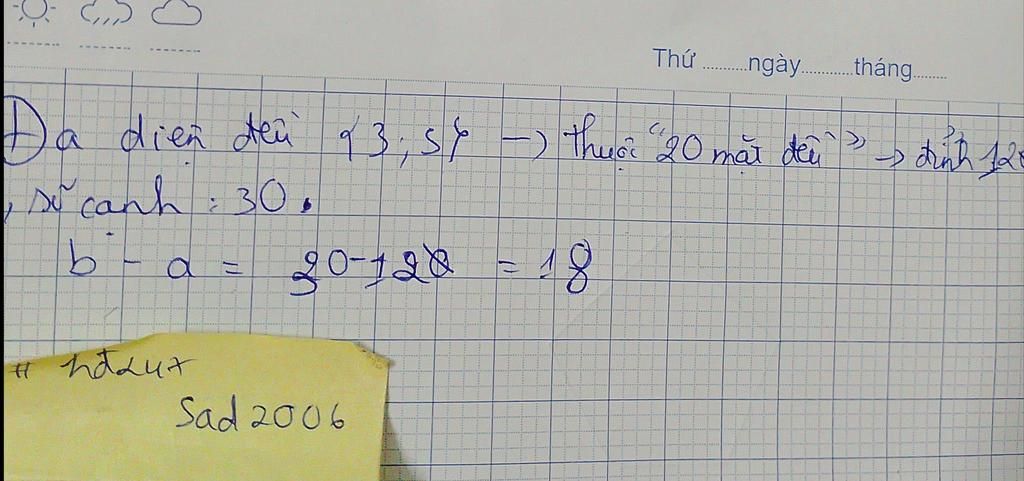 Thứ ..........ngày............tháng........
Đa diện đều {3;5} → thuộc "20 mặt đều" → đỉnh 12
, số cạnh : 30.
b - a = 30-12 = 18
# hđ247
Sad 2006